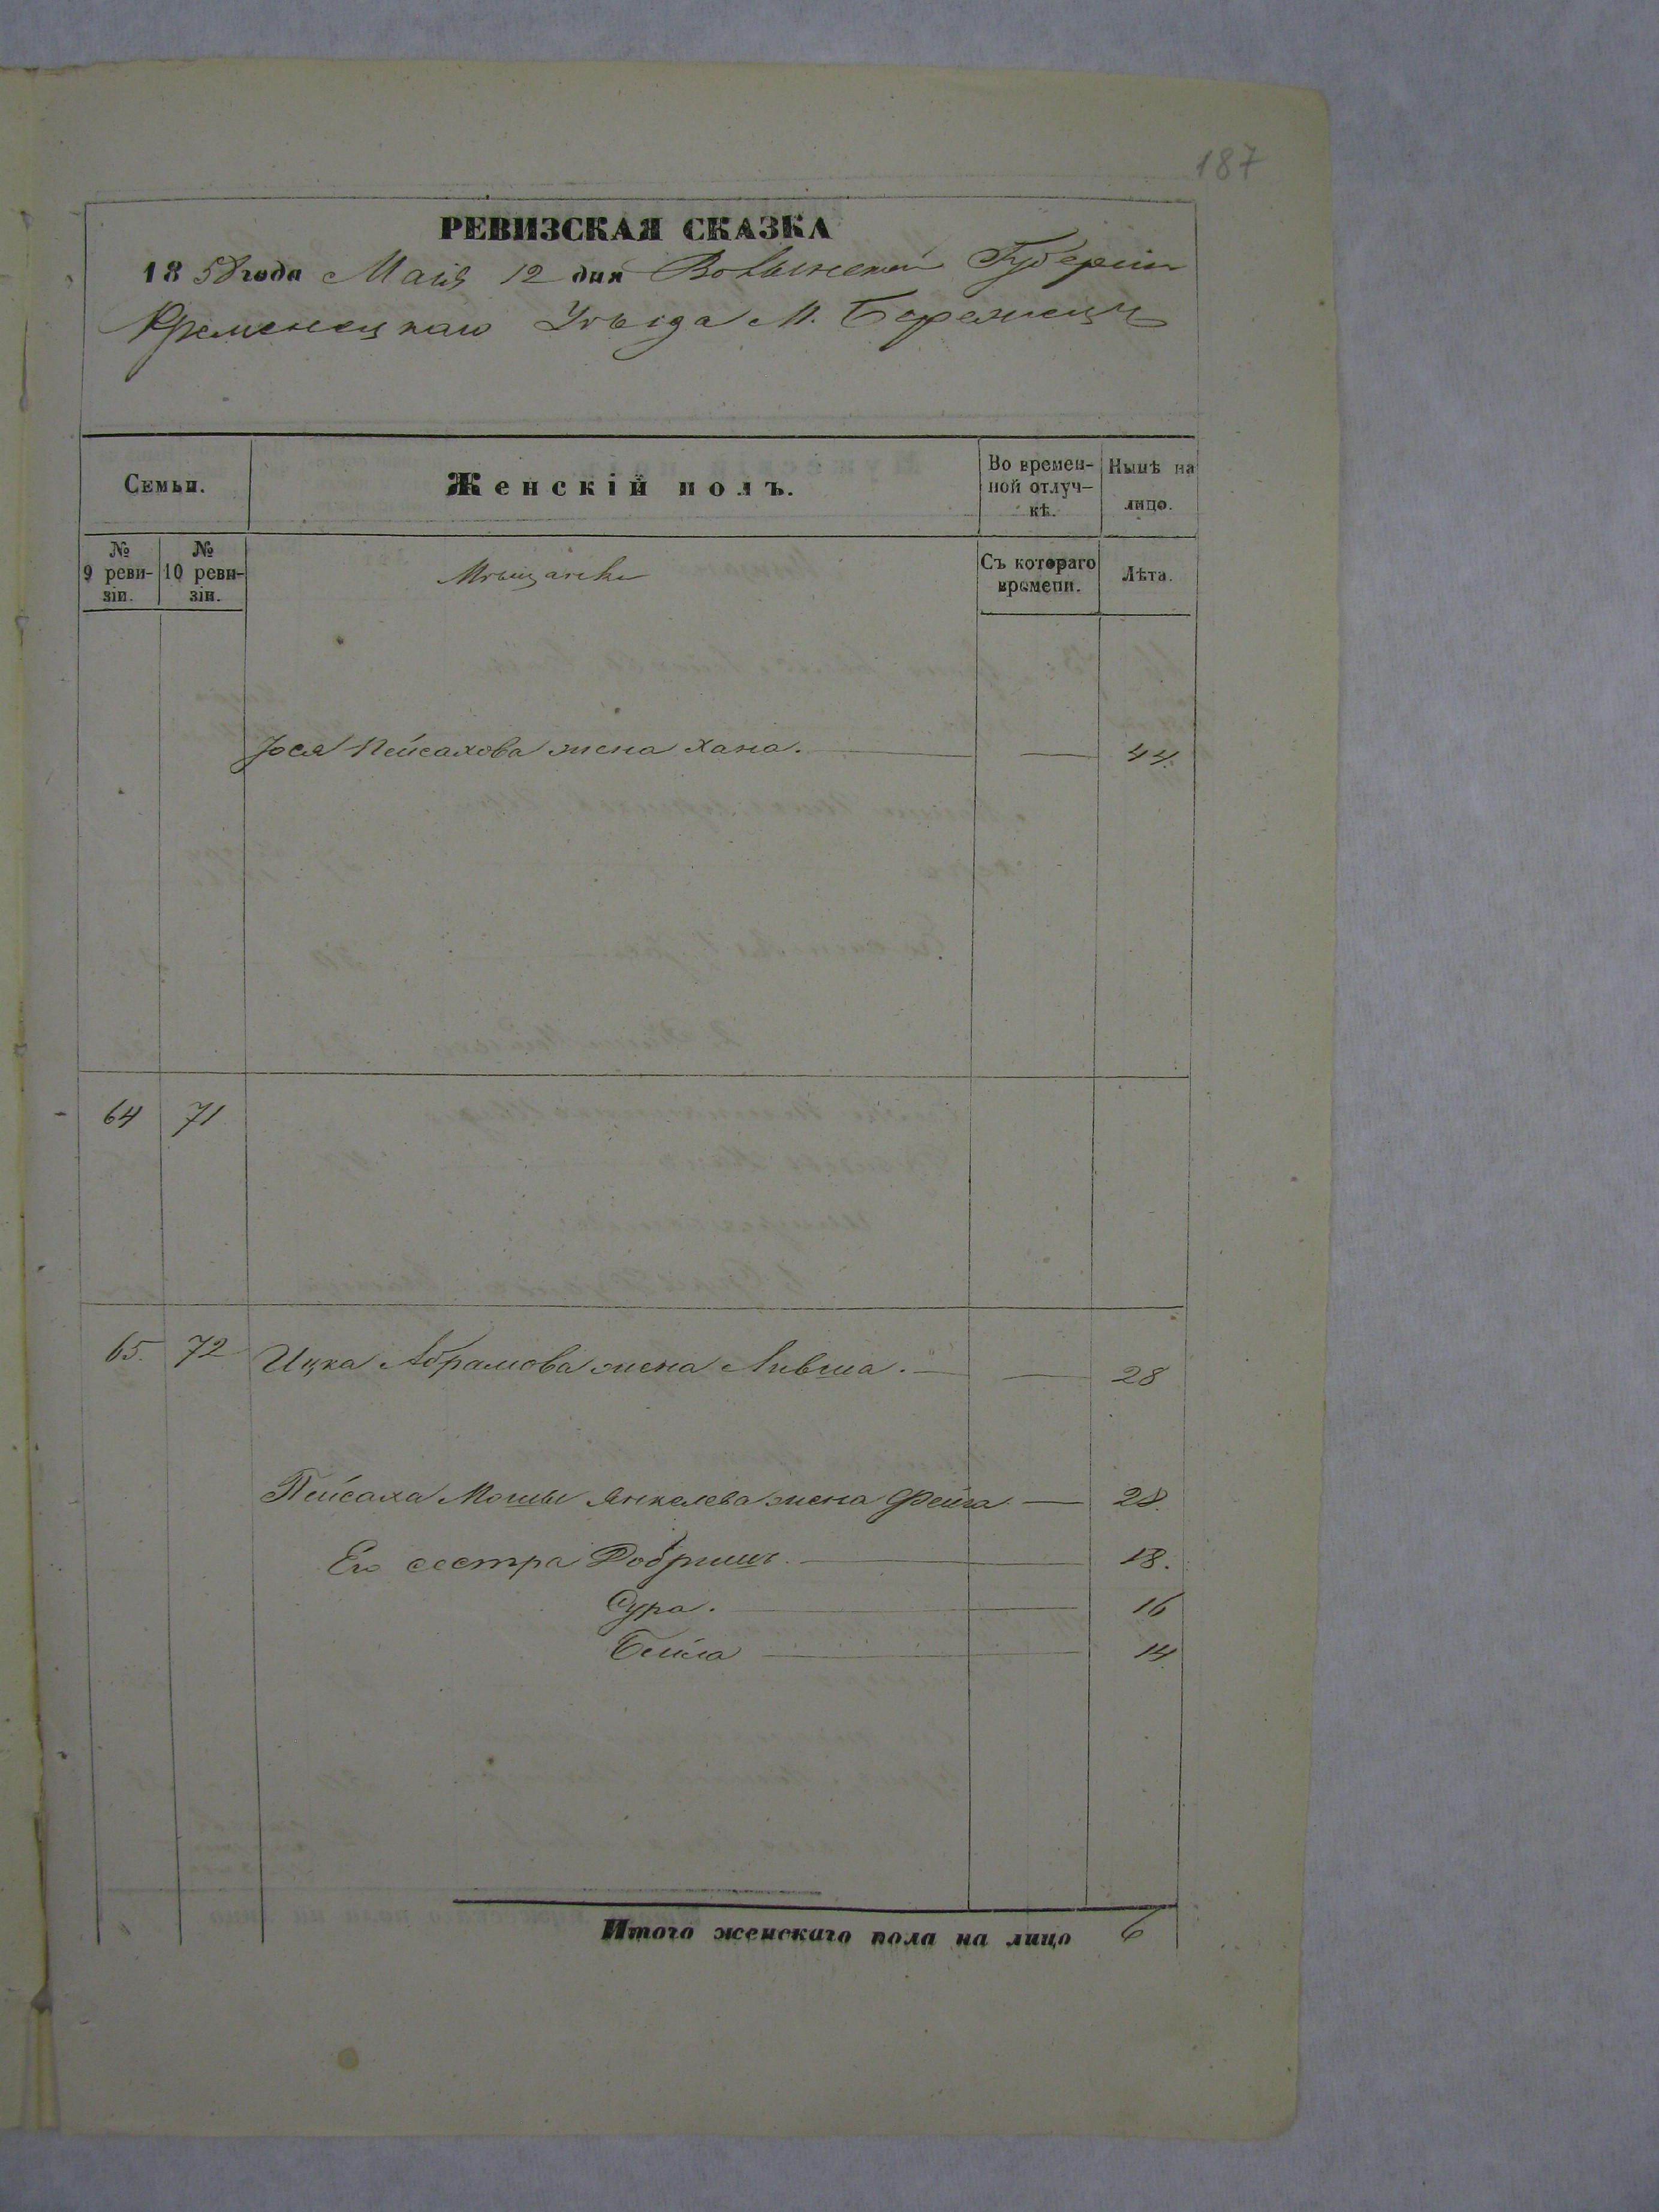 187
РЕВИЗСКАЯ СКАЗКА
1858 года Маія 12 дня Волынской Губерніи
Кременецкаго Уѣзда М. Бережецъ
Семьи.
Женскій полъ.
Во времен-
ной отлуч-
кѣ.
Нынѣ на
лицо.
№
9 реви-
зіи.
№
10 реви-
зіи.
Мѣщанке
Съ котораго
времени.
Лѣта.
Іося Пейсахова жена Хана. — — 44.
64 71
65. 72 Ицка Абрамова жена Лившa. — — 28
Пейсаха Мошы Янкелева жена Фейга — 28.
Его сестра Добришъ. — 18.
Сура. — 16
Бейла — 14
Итого женскаго пола на лицо 6